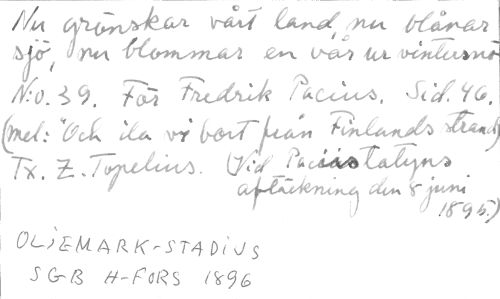 Nu grönskar vårt land, nu blånar
sjö, nu blommar en vår ur vintersnö
N:o. 39. För Fredrik Pacius. Sid. 46.
(mel: "Och ila vi bort från Finlands strand)
Tx. Z. Topelius. (Vid Paciusstatyns
aftäckning den 8 juni
1895.)
OLJEMARK-STADIUS
SGB H-FORS 1896